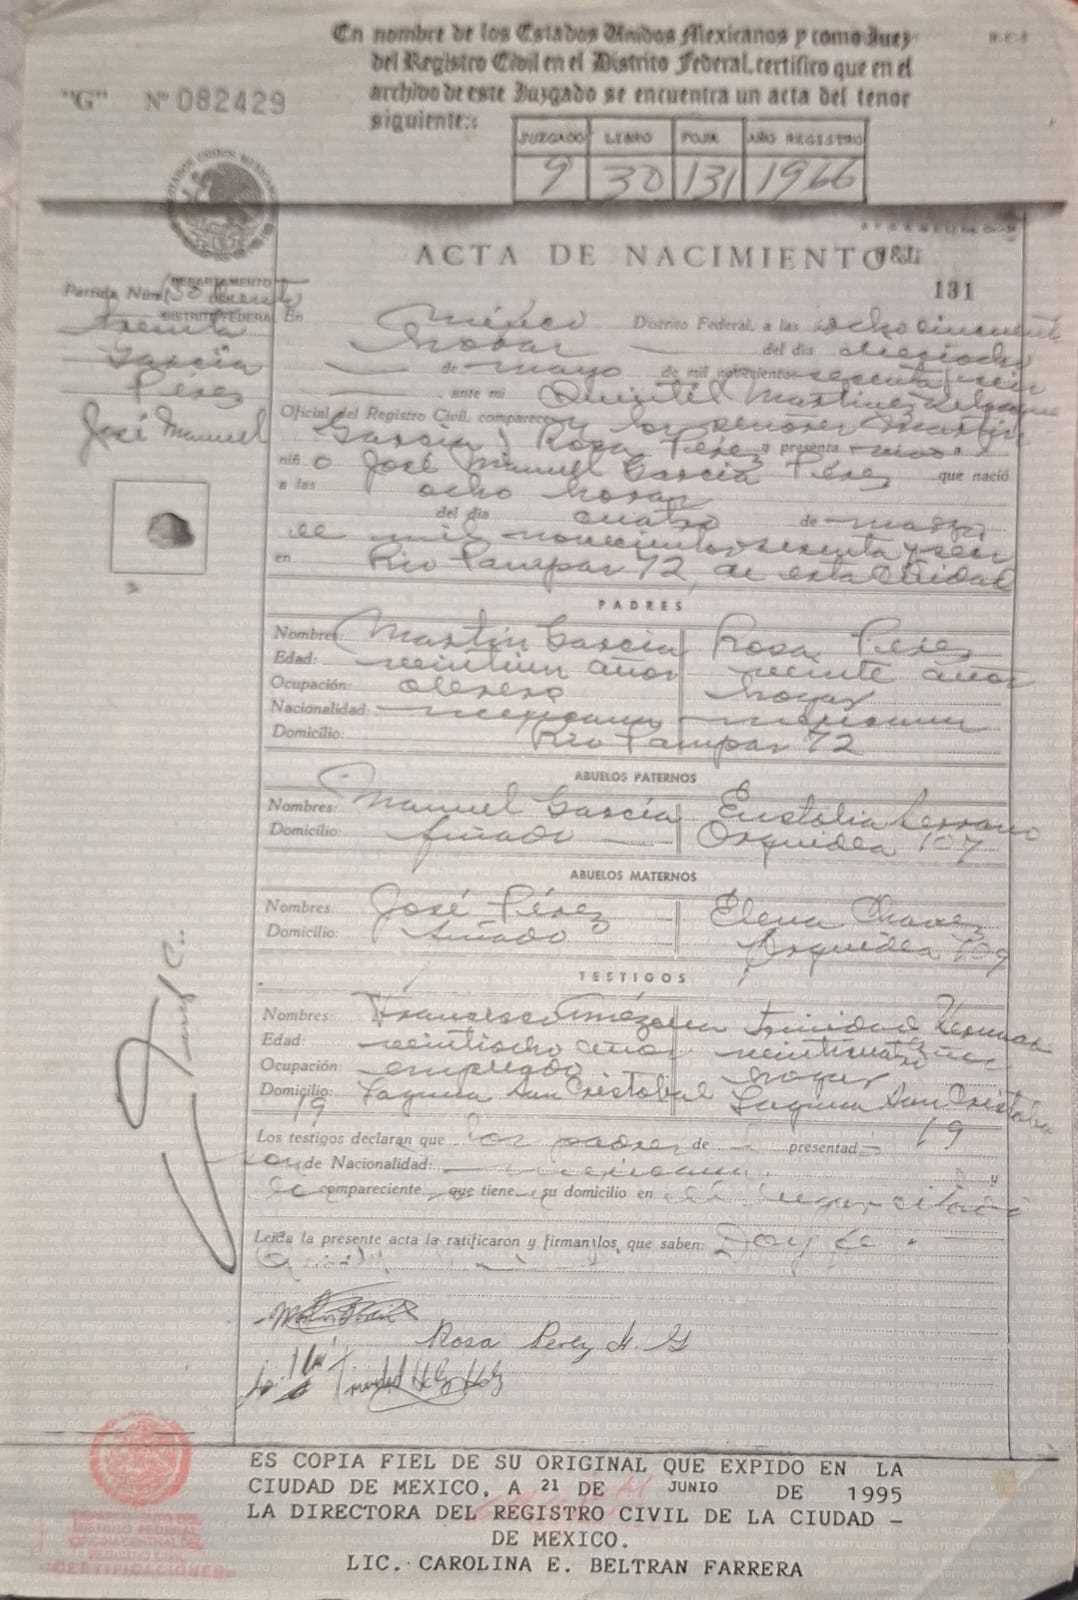 En nombre de los Estados Unidos Mexicanos y como Juez
del Registro Civil en el Distrito Federal, certifico que en el
archivo de este Juzgado se encuentra un acta del tenor
siguiente:
"G" Nº 082429
JUZGADO LIBRO FOJA AÑO REGISTRO
9 30 131 1966
ESTADOS UNIDOS MEXICANOS
ACTA DE NACIMIENTO
131
DEPARTAMENTO
DISTRITO FEDERAL
Partida Núm.
treinta
García
Pérez
José Manuel
En México Distrito Federal, a las ocho cincuenta
horas del día dieciocho
de mayo de mil novecientos sesenta y seis
ante mí Martínez
Oficial del Registro Civil, comparecen los señores Martín
García y Rosa Pérez y presenta vivo
niñ o José Manuel García Pérez que nació
a las ocho horas
del día cuatro de
de mil novecientos sesenta y seis
en Río Pampas 72, de esta Ciudad
PADRES
Nombres: Martín García Rosa Pérez
Edad: veintiun años veinte años
Ocupación: obrero hogar
Nacionalidad: mexicana mexicana
Domicilio: Río Pampas 72
ABUELOS PATERNOS
Nombres: Manuel García Eustolia Serrano
Domicilio: finado Orquidea 107
ABUELOS MATERNOS
Nombres: José Pérez Elena Chavez
Domicilio: finado Orquidea 109
TESTIGOS
Nombres: Francisco Trinidad
Edad: veintiocho años veinticuatro años
Ocupación: empleado hogar
Domicilio: Laguna San Cristobal Laguna San Cristobal
19 19
Los testigos declaran que los padres de presentad
son de Nacionalidad: mexicana y
compareciente que tiene su domicilio en el lugar citado
Leída la presente acta la ratificaron y firman los que saben: Doy fe.
Rosa Perez
Trinidad
ES COPIA FIEL DE SU ORIGINAL QUE EXPIDO EN LA
CIUDAD DE MEXICO, A 21 DE JUNIO DE 1995
LA DIRECTORA DEL REGISTRO CIVIL DE LA CIUDAD -
DE MEXICO.
LIC. CAROLINA E. BELTRAN FARRERA
DISTRITO FEDERAL
OFICINA CENTRAL DEL
REGISTRO CIVIL
CERTIFICACIONES